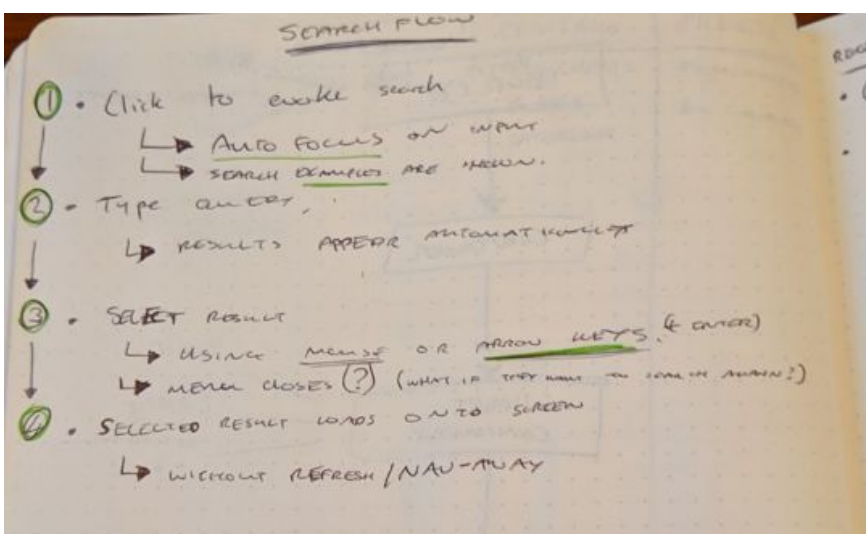 SEARCH FLOW
① • Click to evoke search
↳ AUTO FOCUS ON INPUT
↳ SEARCH EXAMPLES ARE SHOWN.
② • Type QUERY,
↳ RESULTS APPEAR AUTOMATICALLY
③ • SELECT RESULT
↳ USING MOUSE OR ARROW KEYS. (& ENTER)
↳ MENU CLOSES (?) (WHAT IF THEY WANT TO SEARCH AGAIN?)
④ • SELECTED RESULT LOADS ONTO SCREEN
↳ WITHOUT REFRESH/NAV-AWAY